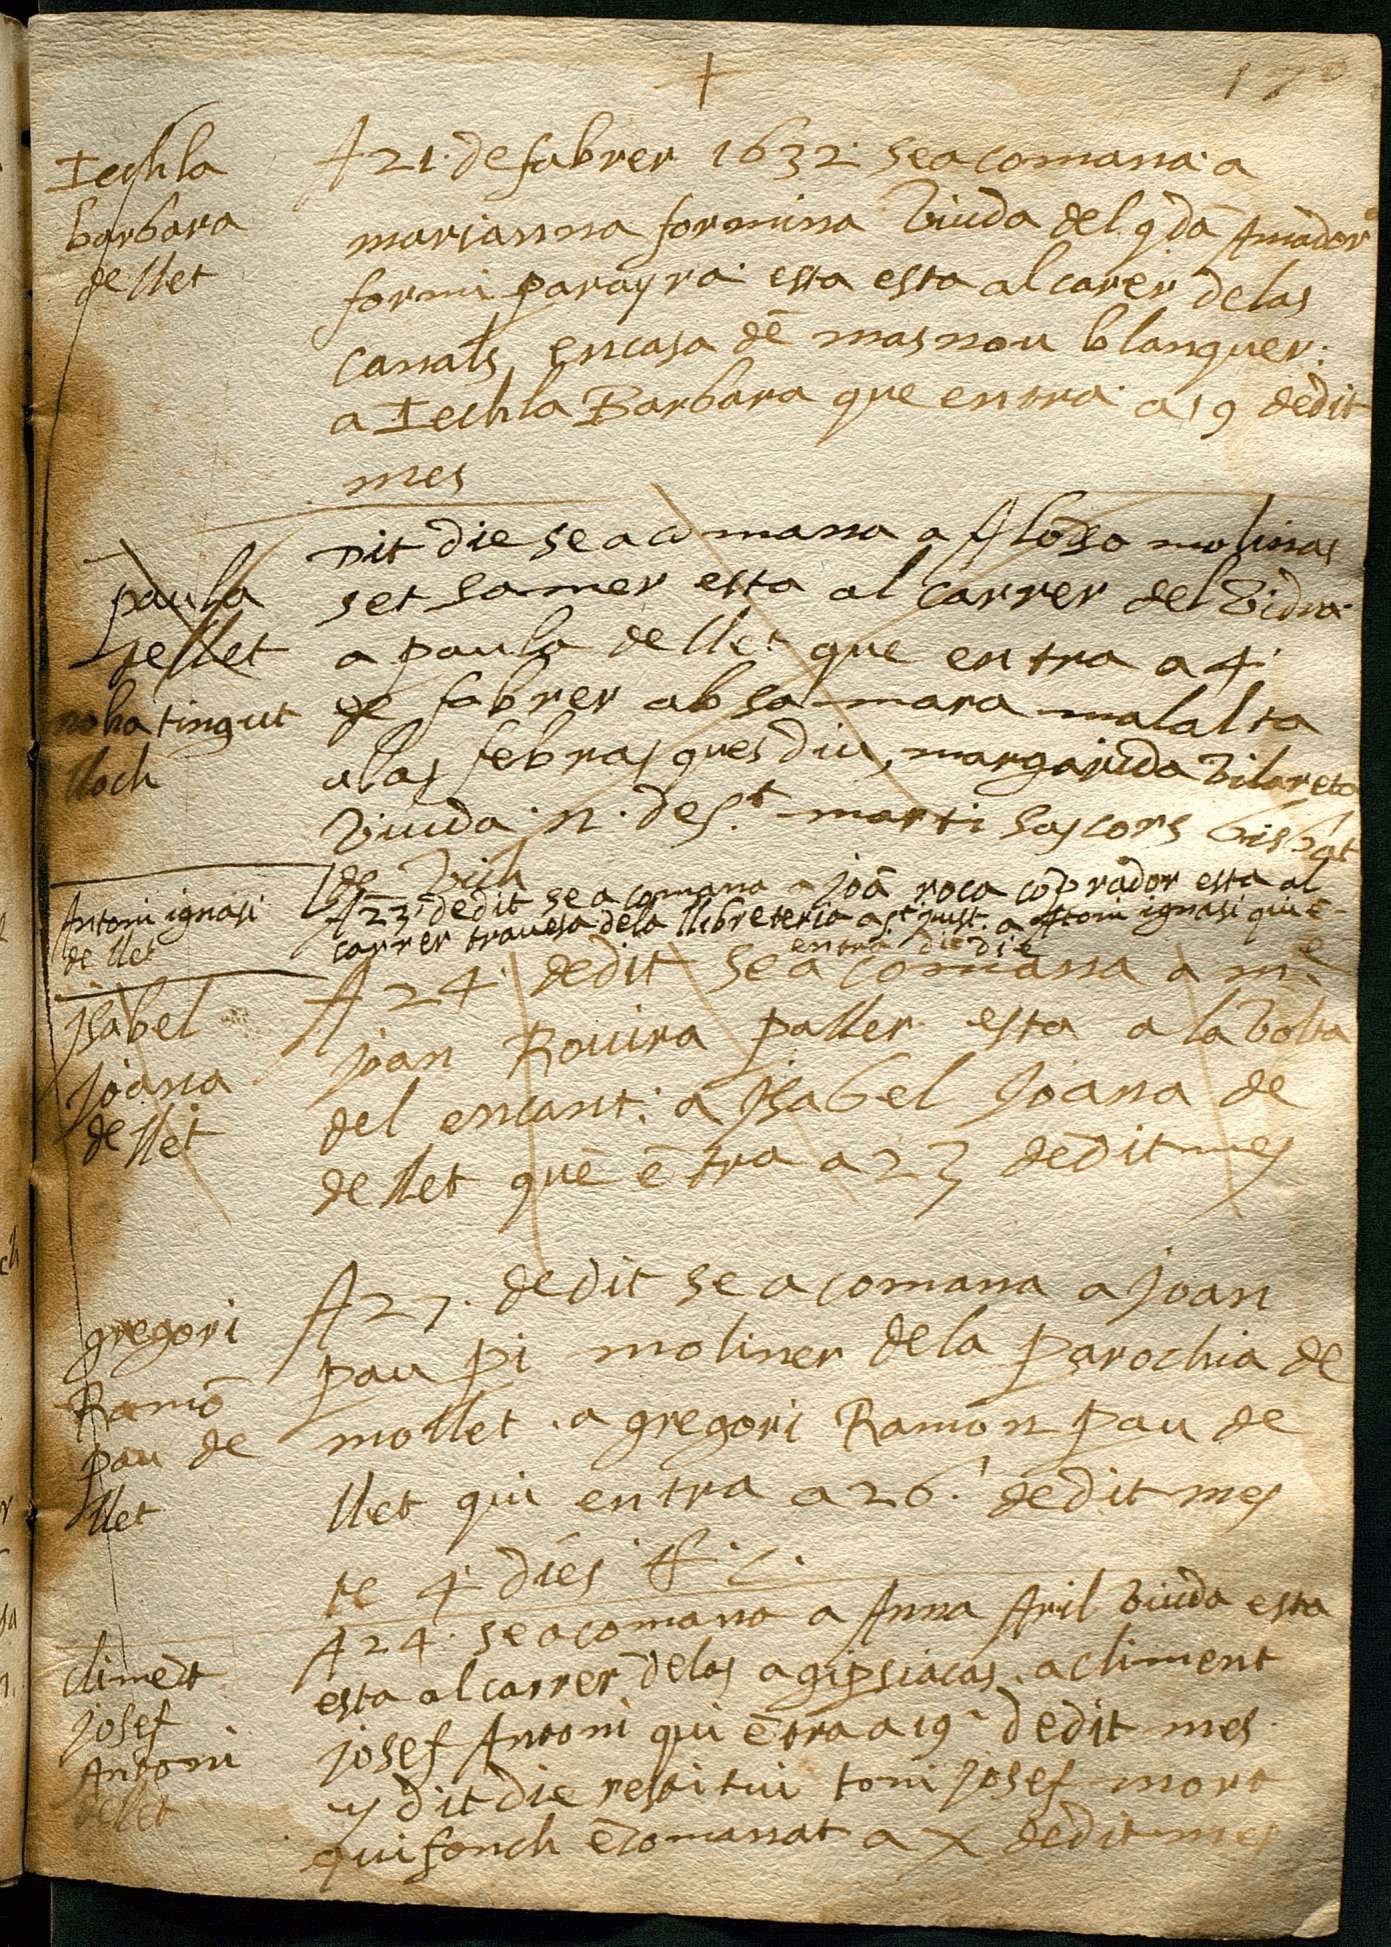 +
170
Techla
barbara
de llet
A 21. de fabrer 1632. se acomana. a
marianna formina viuda del qdā Amador
formi parayra. esta esta al carer de las
canals, en casa dē masnou blanquer.
a Techla Barbara que entra. a 19 de dit
mes
paula
de llet
no ha tingut
lloch
Dit die se acomana a Aloso molinas
set samer esta al carrer del vidra.
a paula de llet que entra a 4.
de fabrer ab sa mara malalta
a las febras ques diu, margarida vilareta
viuda n. de St. marti sascors bisbat
de Vich
Antoni ignasi
de llet
A 23. de dit se acomana a joā roca cōprador esta al
carrer travesa de la llibreteria a St just. a Antoni ignasi qui ē-
entra dit die
Isabel
Joana
de llet
A 24. de dit se acomana a mē
joan Rovira paller. esta a la volta
del encant. a Isabel Joana de
de llet que ētra a 23 de dit mes
gregori
Ramō
pau de
llet
A 27. de dit se acomana a joan
pau pi moliner de la parochia de
mollet. a gregori Ramon pau de
llet qui entra a 26. de dit mes
te 4. dies
climēt
josef
Antoni
de llet
A 24. se acomana a Anna Aril viuda esta
esta al carrer de las agipsiacas. a climent
josef Antoni qui ētra a 19 de dit mes.
y dit die restitui toni josef mort
qui fonch ēcomanat a X de dit mes